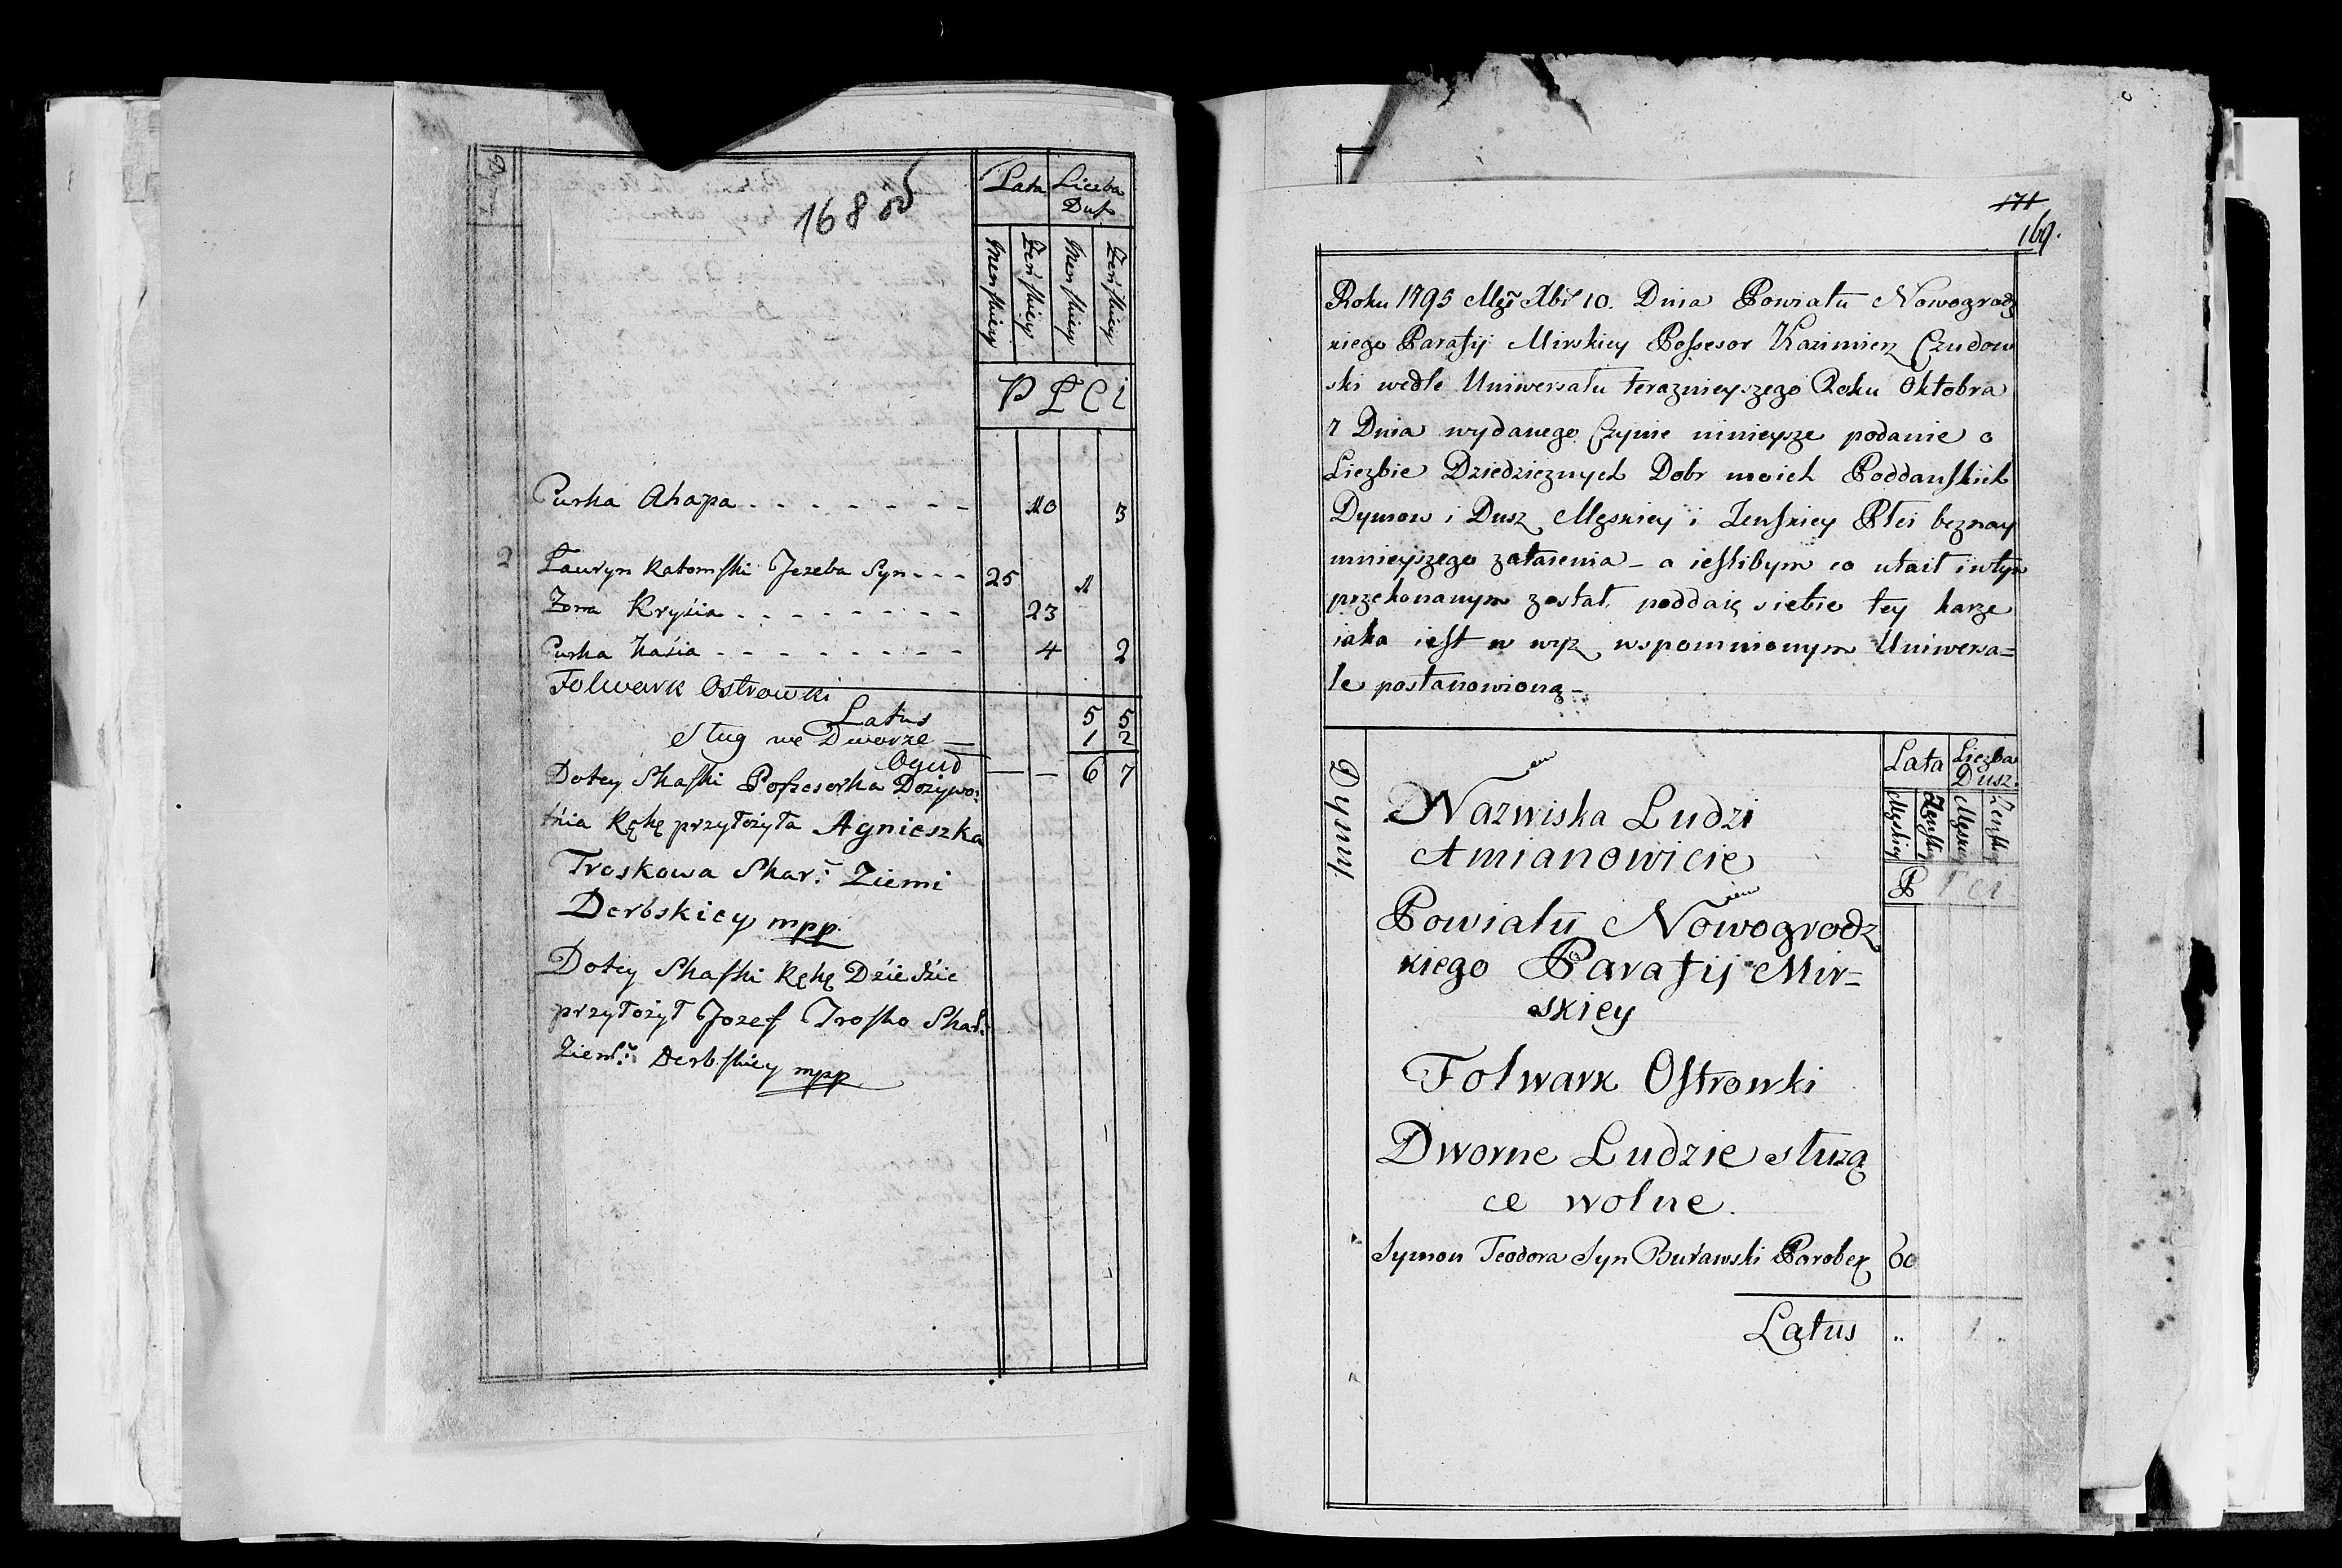 168 об
Lata Liczba
Dusz
Menskiey Żeńskiey Menskiey Żeńskiey
P Ł C i
Curka Ahapa - - - - - - - - 10 3
2 Łauryn Katomski Jezeba Syn - - - 25 1
Zona Krysia - - - - - - - - 23
Curka Kasia - - - - - - - - 4 2
Folwark Ostrowki
Latus 5 5
Sług we Dworze — 1 2
Oguł — — 6 7
Dotey Skaski Possesorka Dożywo:
tnia Rękę przyłożyła Agnieszka
Troskowa Skar: Ziemi
Derbskiey mpp.
Dotey Skaski Rękę Dziedzic
przyłożył Jozef Trosko Skar:
Ziem: Derbskiey mpp
171
169.
Roku 1795 Mcę Xbr 10. Dnia Powiatu Nowogrodz
kiego Parafij Mirskiey Possesor Kazimierz Czudow
ski wedle Uniwersału teraznieyszego Roku Oktobra
7 Dnia wydanego Czynie ninieysze podanie o
Liczbie Dziedzicznych Dobr moich Poddanskich
Dymow i Dusz Męskiey i Zenskiey Płci beznay
mnieyszego zatarenia - a ieslibym co utaił iwtym
przekonanym został, poddaię siebie tey karze
iaka iest w wyz wspomnionym Uniwersa=
le postanowioną -
Dymy
Lata Liczba
Dusz.
Męskiey Zenskiey Męskiey Zenskiey
P Ł C i
Nazwiska Ludzi
Amianowicie
Powiatu Nowogrodz
kiego Parafij Mir=
skiey
Folwark Ostrowki
Dworne Ludzie służą
ce wolne.
Symon Teodora Syn Buławski Parobek 60
Latus .. 1 ..